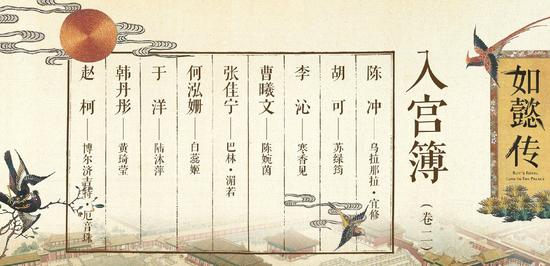 如懿传
RUYI'S ROYAL
LOVE IN THE PALACE
入宫簿
（卷二）
陈冲——乌拉那拉·宜修
胡可——苏绿筠
李沁——寒香见
曹曦文——陈婉茵
张佳宁——巴林·湄若
何泓姗——白蕊姬
于洋——陆沐萍
韩丹彤——黄琦莹
赵柯——博尔济吉特·厄音珠